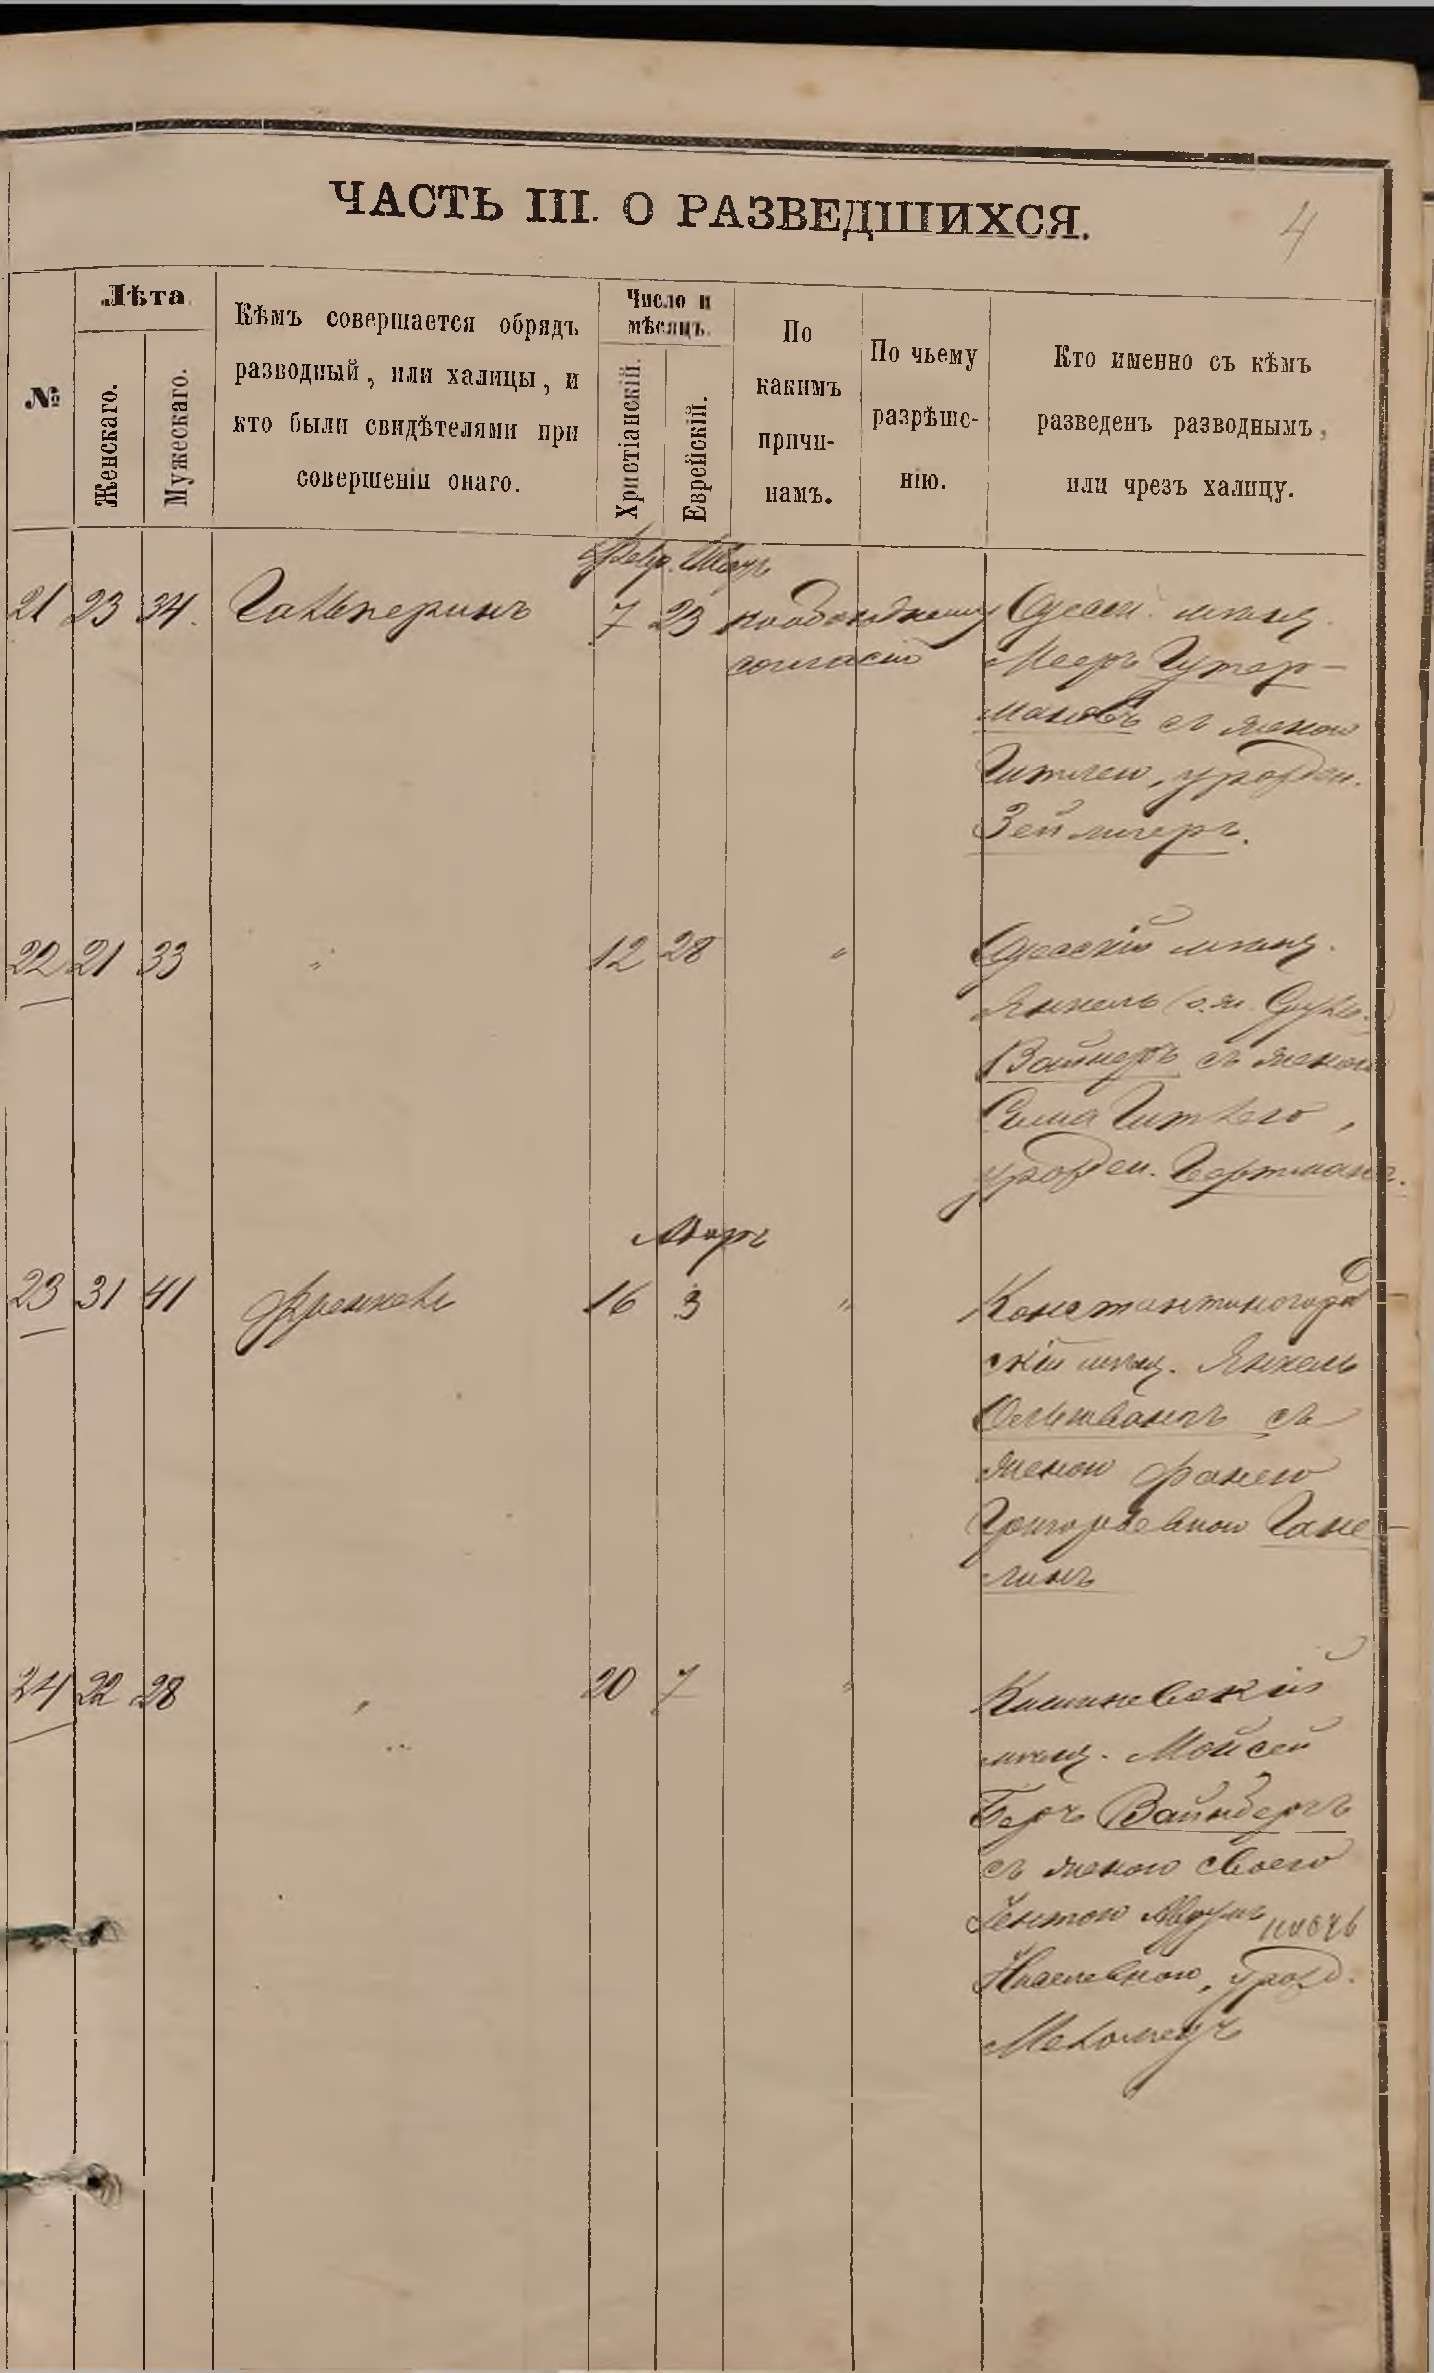 ЧАСТЬ III. О РАЗВЕДШИХСЯ.
4
№
Лѣта
Женскаго.
Мужескаго.
Кѣмъ совершается обрядъ
разводный, или халицы, и
кто были свидѣтелями при
совершеніи онаго.
Число и
мѣсяцъ.
Христіанскій.
Еврейскій.
По
какимъ
причи-
намъ.
По чьему
разрѣше-
нію.
Кто именно съ кѣмъ
разведенъ разводнымъ,
или чрезъ халицу.
Февр. Шватъ
21 23 34. Гальперинъ 7 23 по обоюдному Одесск. мѣщ.
согласію Мееръ Гутер-
манъ съ женою
Гитлею, урожден.
Зейлигеръ.
22 21 33 " 12 28 " Одесскій мѣщ.
Янкель (о. ж. Сруль)
Вайнеръ съ женою
Сима Гитлею,
урожден. Гертманъ.
Мартъ
23 31 41 Френкель 16 3 " Константиноград
скій мѣщ. Янкель
Ольшванъ съ
женою Фанею
Григорьевною Гане-
линъ
24 22 28 " 20 7 " Кишиневскій
мѣщ. Мойсей
Беръ Вайнбергъ
съ женою своею
Ентою Аврумъ
урожд.
Меламедъ